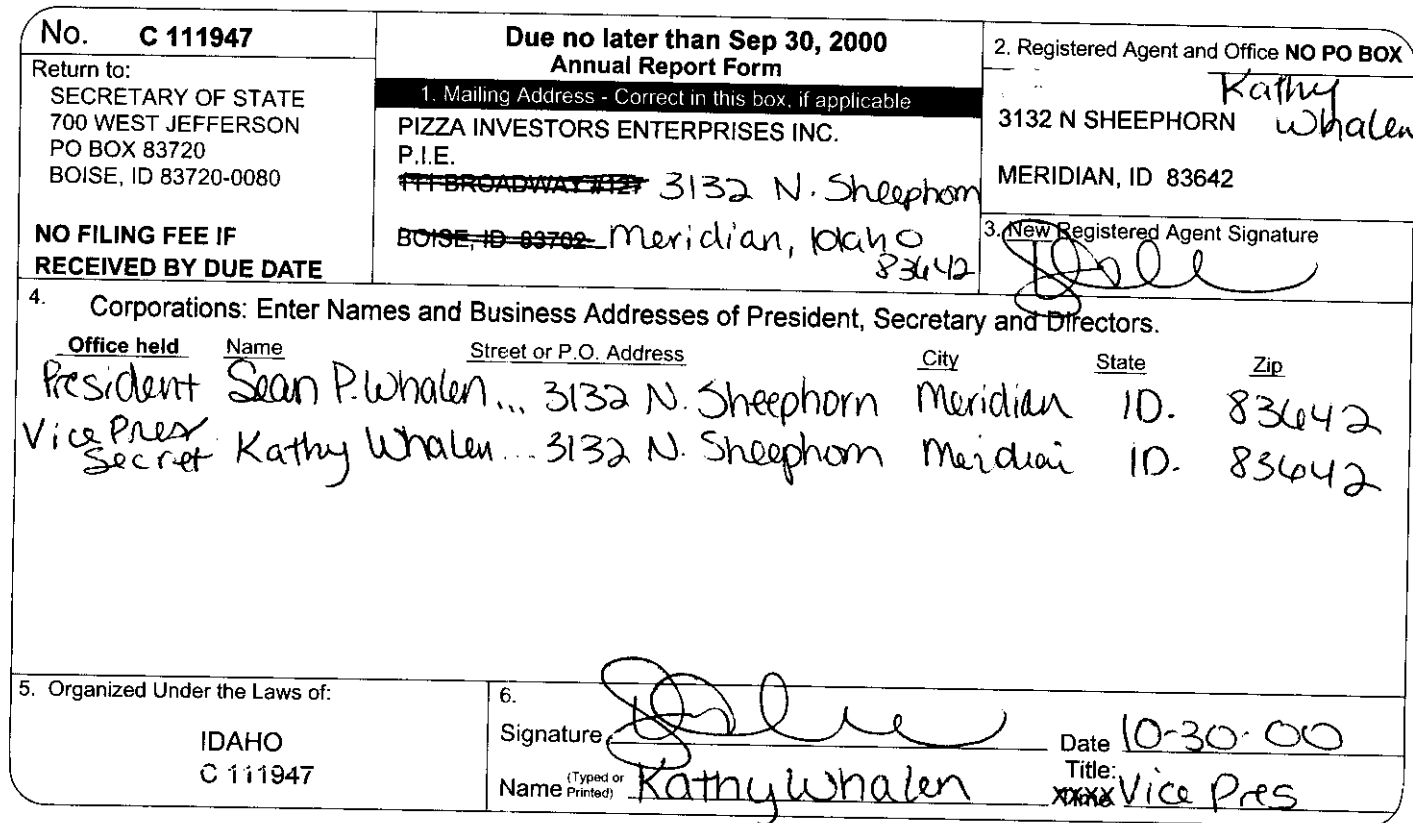 No. C 111947
Return to:
SECRETARY OF STATE
700 WEST JEFFERSON
PO BOX 83720
BOISE, ID 83720-0080
NO FILING FEE IF
RECEIVED BY DUE DATE
Due no later than Sep 30, 2000
Annual Report Form
1. Mailing Address - Correct in this box, if applicable
PIZZA INVESTORS ENTERPRISES INC.
P.I.E.
111 BROADWAY #127 3132 N. Sheephorn
BOISE, ID 83702 Meridian, Idaho
83642
2. Registered Agent and Office NO PO BOX
Kathy
3132 N SHEEPHORN Whalen
MERIDIAN, ID 83642
3. New Registered Agent Signature
4. Corporations: Enter Names and Business Addresses of President, Secretary and Directors.
Office held Name Street or P.O. Address City State Zip
President Sean P. Whalen... 3132 N. Sheephorn Meridian ID. 83642
Vice Pres
Secret Kathy Whalen... 3132 N. Sheephorn Meridian ID. 83642
5. Organized Under the Laws of:
IDAHO
C 111947
6.
Signature Date 10-30-00
Name (Typed or Printed) Kathy Whalen Title: Vice Pres